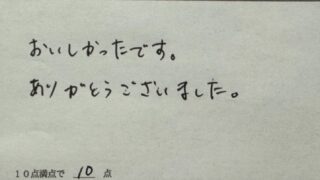 おいしかったです。
ありがとうございました。
10点満点で 10 点